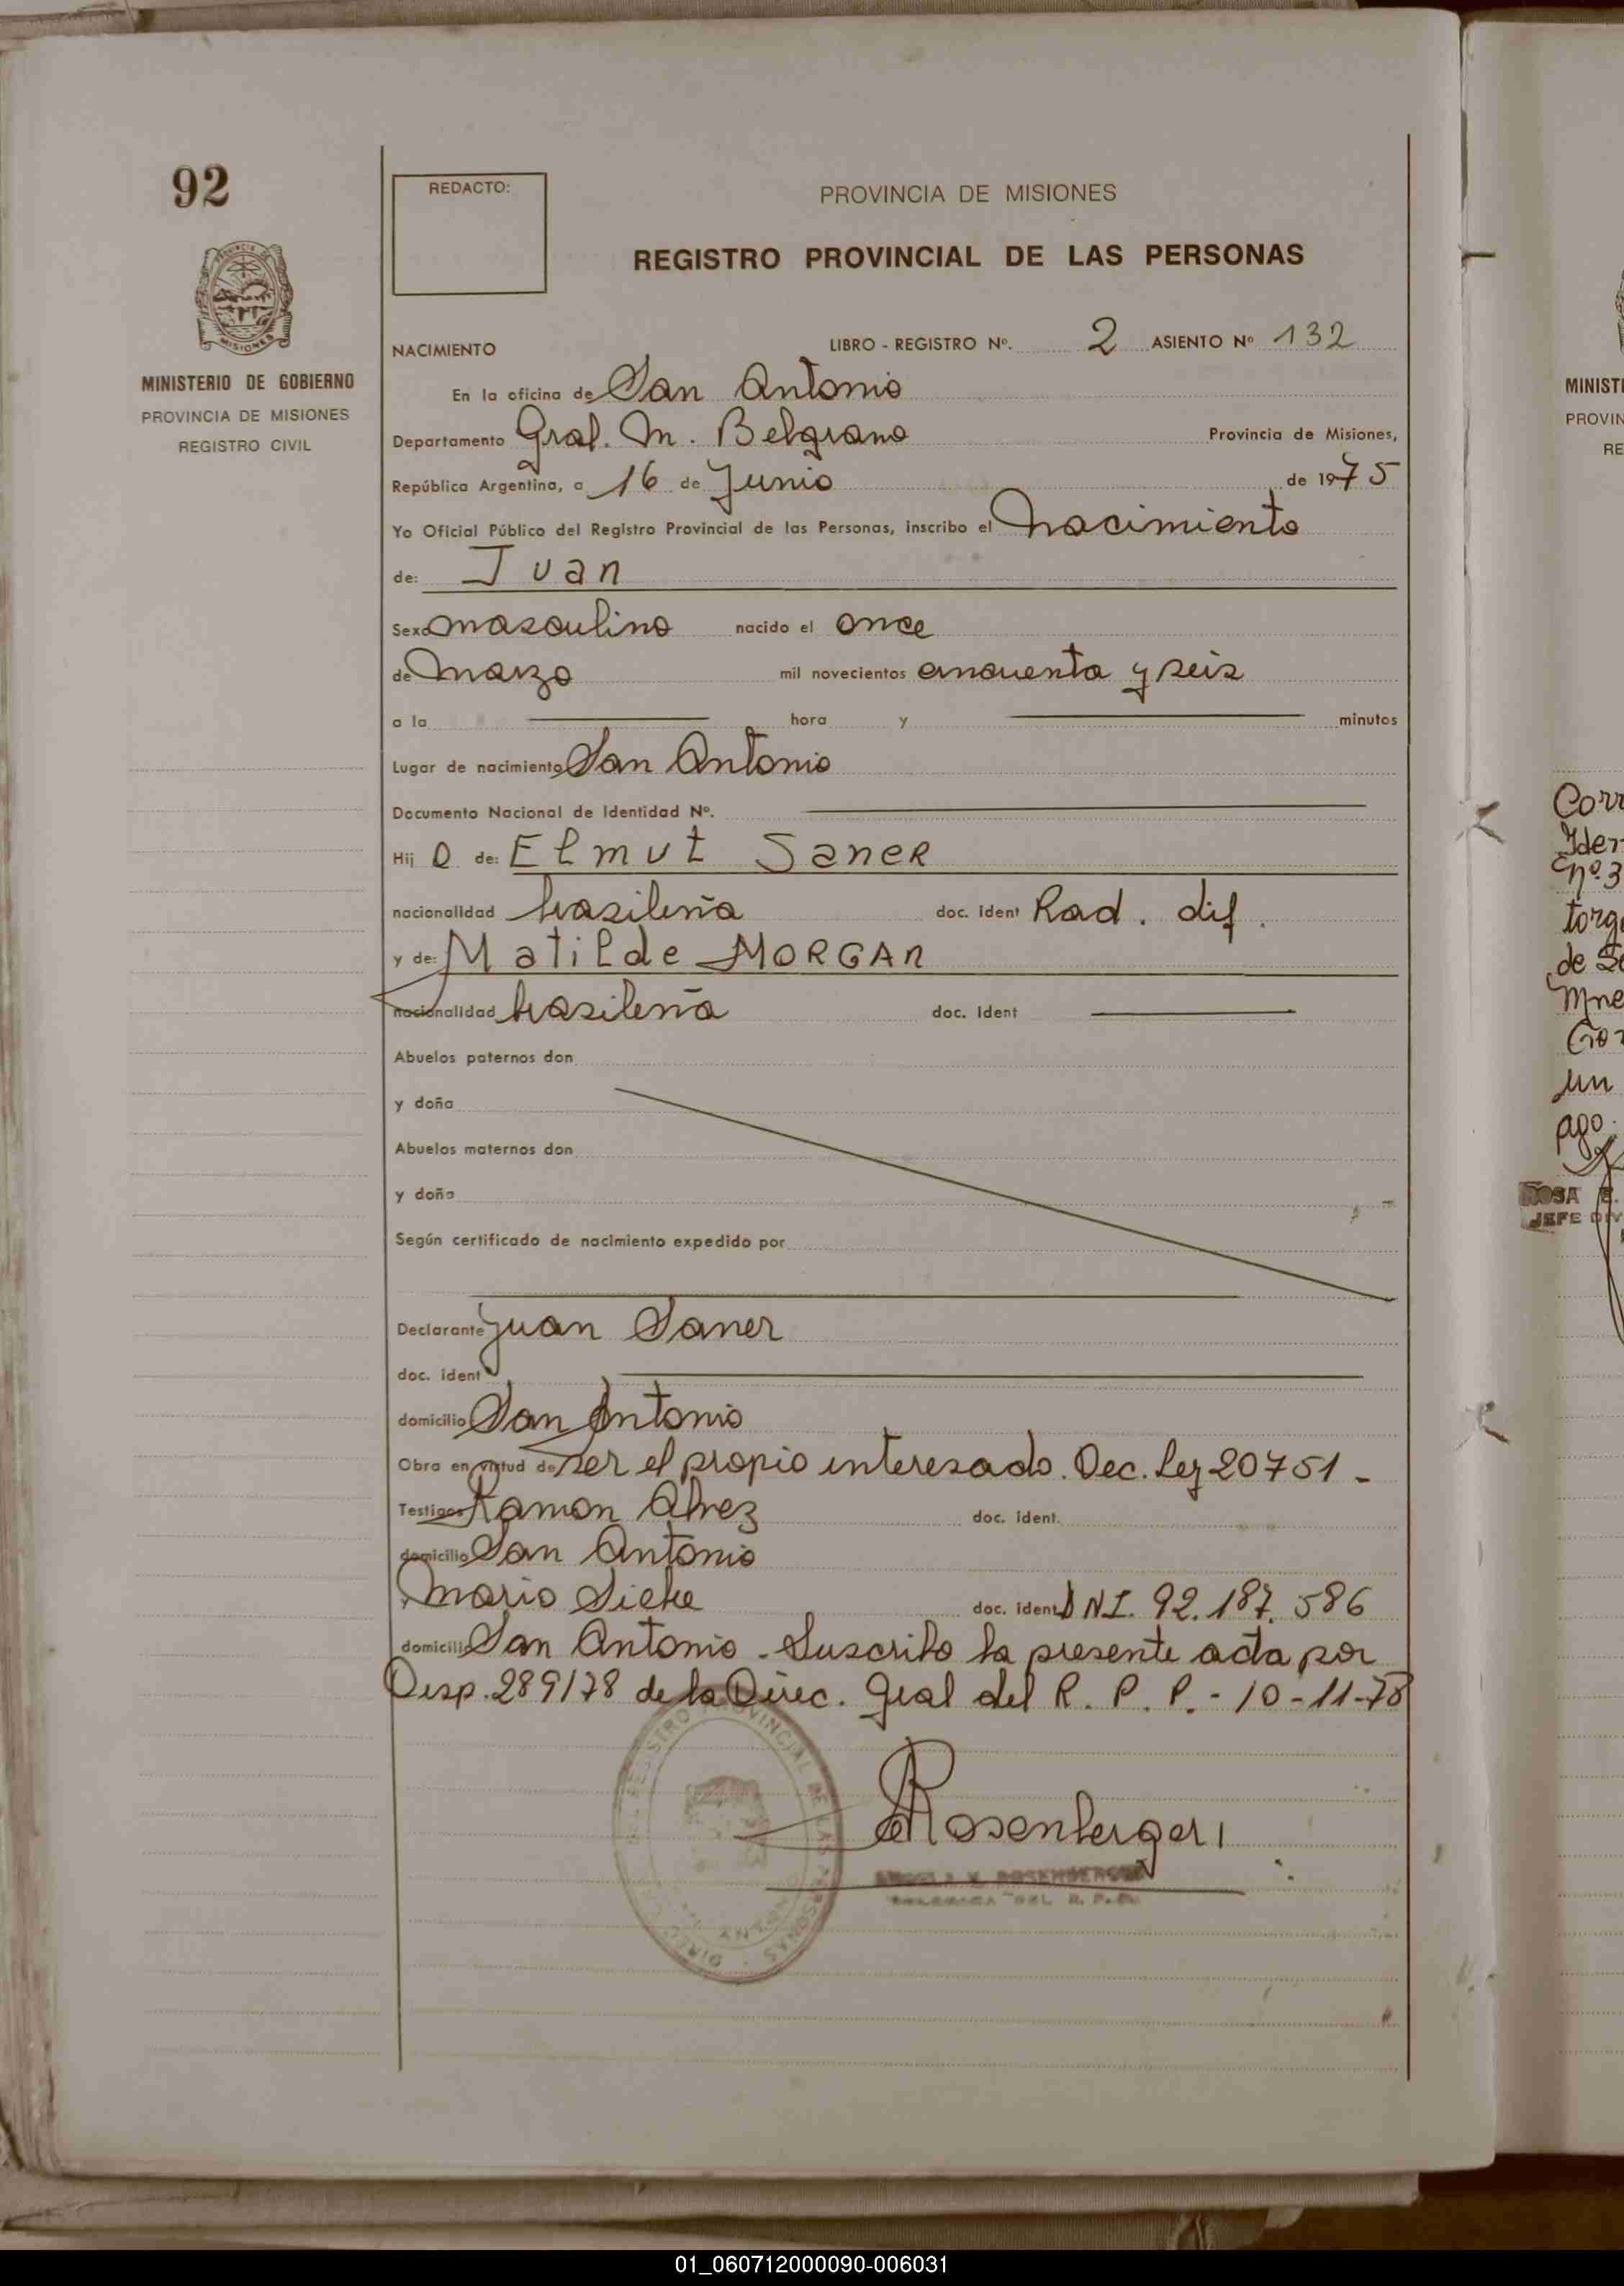 92
REDACTO:
PROVINCIA DE MISIONES
REGISTRO PROVINCIAL DE LAS PERSONAS
MISIONES
MINISTERIO DE GOBIERNO
PROVINCIA DE MISIONES
REGISTRO CIVIL
NACIMIENTO LIBRO - REGISTRO Nº. 2 ASIENTO Nº 132
En la oficina de San Antonio
Departamento Gral. M. Belgrano Provincia de Misiones,
República Argentina, a 16 de Junio de 1975
Yo Oficial Público del Registro Provincial de las Personas, inscribo el nacimiento
de: Juan
Sexo masculino nacido el once
de marzo mil novecientos cincuenta y seis
a la hora y minutos
Lugar de nacimiento San Antonio
Documento Nacional de Identidad Nº.
Hij o de: Elmut Saner
nacionalidad brasileña doc. ident Rad. dif.
y de: Matilde MORGAN
nacionalidad brasileña doc. ident
Abuelos paternos don
y doña
Abuelos maternos don
y doña
Según certificado de nacimiento expedido por
Declarante Juan Saner
doc. ident
domicilio San Antonio
Obra en virtud de ser el propio interesado. Dec. Ley 20751 -
Testigos Ramon Alvez doc. ident.
domicilio San Antonio
y Mario Sicke doc. ident DNI. 92.187.586
domicilio San Antonio - Suscribo la presente acta por
Disp. 289/78 de la Direc. Gral del R. P. P. - 10-11-78
REGISTRO PROVINCIAL DE LAS PERSONAS
Rosenberger
ROSENBERGER
DELEGADA DEL R. P. P.
MINIST
PROVIN
RE
Corr
Iden
Nº 3
torg
de
un
ago.
ROSA E.
JEFE DIV
01_060712000090-006031